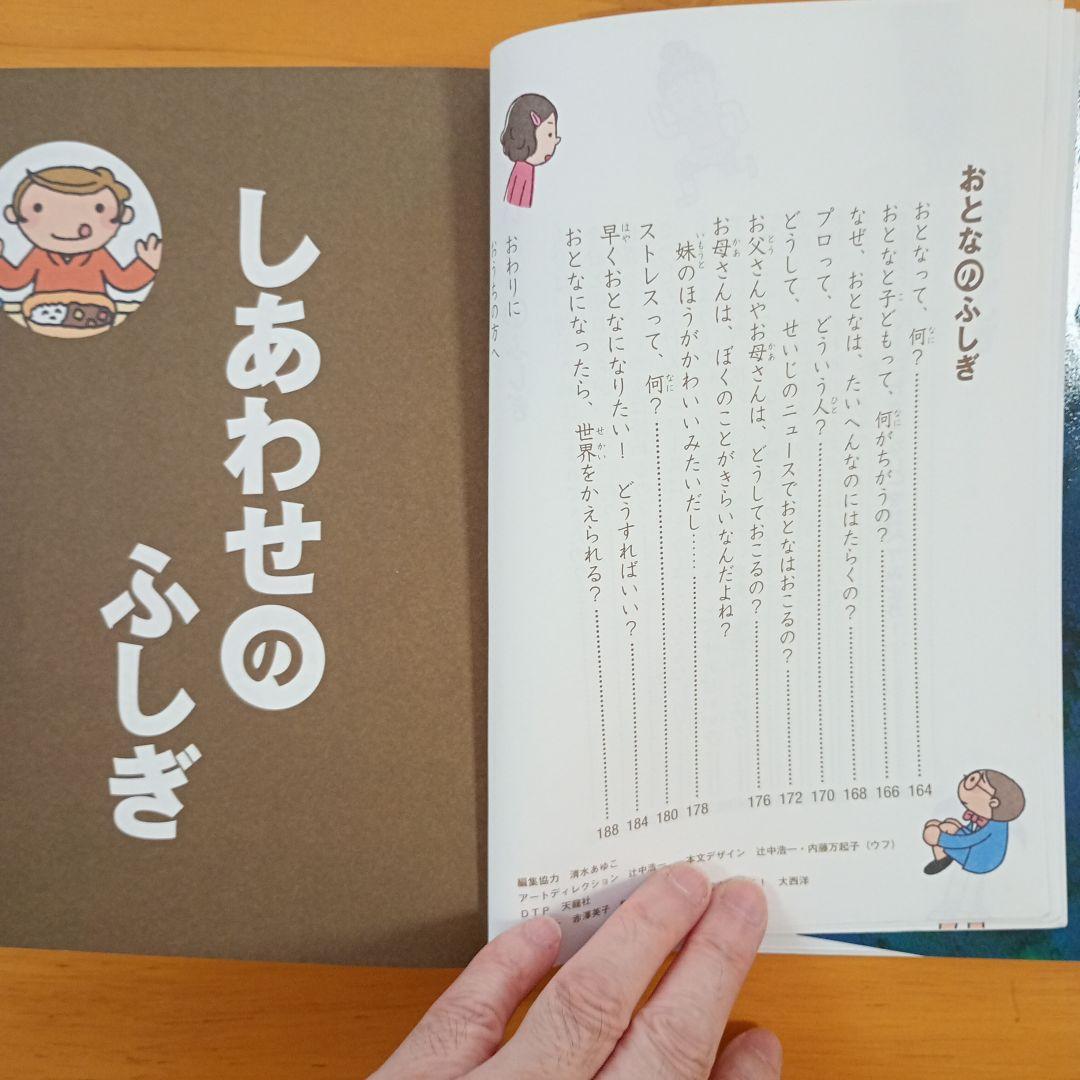 おとなのふしぎ
おとなって、何？ 164
おとなと子どもって、何がちがうの？ 166
なぜ、おとなは、たいへんなのにはたらくの？ 168
プロって、どういう人？ 170
どうして、せいじのニュースでおとなはおこるの？ 172
お父さんやお母さんは、どうしておこるの？ 176
お母さんは、ぼくのことがきらいなんだよね？
妹のほうがかわいいみたいだし…… 178
ストレスって、何？ 180
早くおとなになりたい！ どうすればいい？ 184
おとなになったら、世界をかえられる？ 188
おわりに
おうちの方へ
編集協力 清水あゆこ
アートディレクション 辻中浩一 本文デザイン 辻中浩一・内藤万起子（ウフ）
DTP 天龍社 大西洋
赤澤英子
しあわせの
ふしぎ